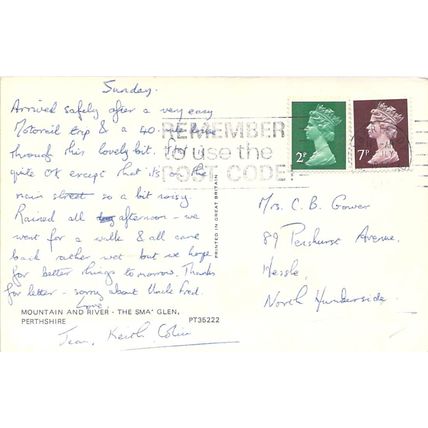 Sunday.
Arrived safely after a very easy
Motorail trip & a 40 mile drive
through this lovely bit. This is
quite OK except that it's on the
main street so a bit noisy
Rained all afternoon - we
went for a walk & all came
back rather wet - but we hope
for better things tomorrow. Thanks
for letter - sorry about Uncle Fred.
Love
Jean, Keith, Colin
MOUNTAIN AND RIVER - THE SMA' GLEN,
PERTHSHIRE
PT35222
PRINTED IN GREAT BRITAIN
REMEMBER
to use the
POST CODE
2P
7P
Mrs. C. B. Gower
89 Penshurst Avenue,
Hessle,
North Humberside.